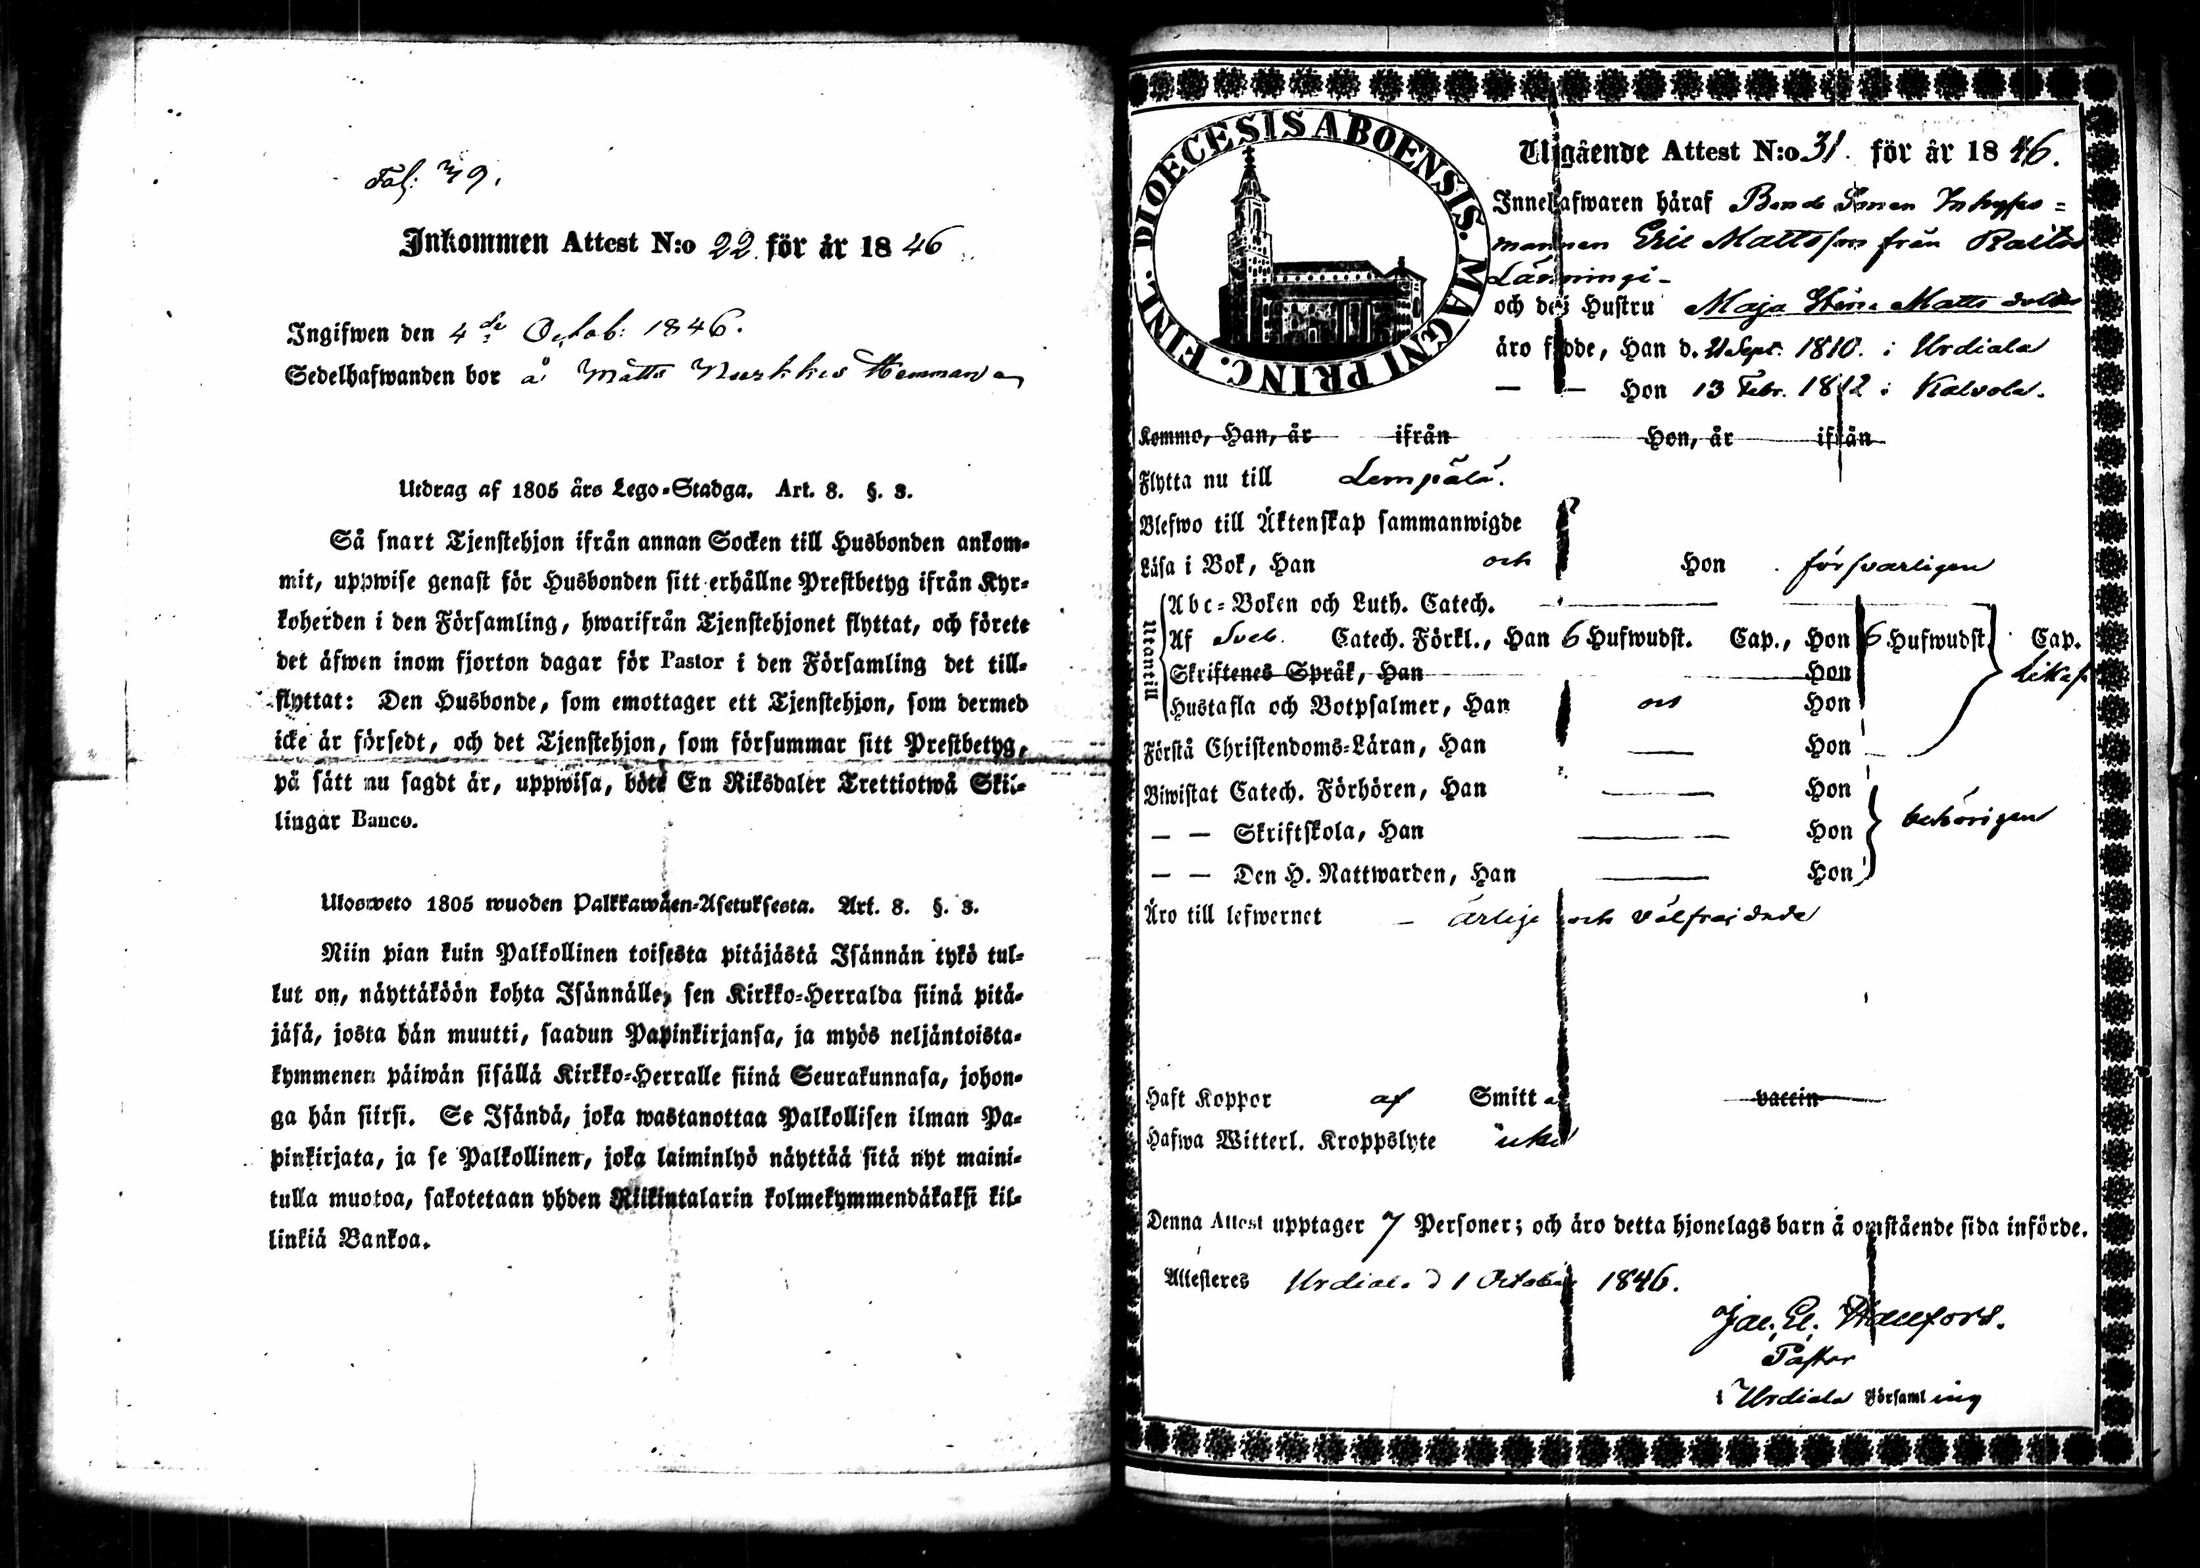 Fol: 39.
Inkommen Attest N:o 22 för år 1846
Ingifwen den 4de Octob: 1846.
Sedelhafwanden bor å Matts Hemman
Utdrag af 1805 års Lego-Stadga. Art. 8. §. 3.
Så snart Tjenstehjon ifrån annan Socken till Husbonden ankom-
mit, uppwise genast för Husbonden sitt erhållne Prestbetyg ifrån Kyr-
koherden i den Församling, hwarifrån Tjenstehjonet flyttat, och förete
det äfwen inom fjorton dagar för Pastor i den Församling det till-
flyttat: Den Husbonde, som emottager ett Tjenstehjon, som dermed
icke är försedt, och det Tjenstehjon, som försummar sitt Prestbetyg,
på sätt nu sagdt är, uppwisa, böte En Riksdaler Trettiotwå Skil-
lingar Banco.
Ulosweto 1805 wuoden Palkkawäen-Asetuksesta. Art. 8. §. 3.
Niin pian kuin Palkollinen toisesta pitäjästä Isännän tykö tul-
lut on, näyttäköön kohta Isännälle, sen Kirkko-Herralda siinä pitä-
jäsä, josta hän muutti, saadun Papinkirjansa, ja myös neljäntoista-
kymmenen päiwän sisällä Kirkko-Herralle siinä Seurakunnasa, johon-
ga hän siirsi. Se Isändä, joka wastanottaa Palkollisen ilman Pa-
pinkirjata, ja se Palkollinen, joka laiminlyö näyttää sitä nyt maini-
tulla muotoa, sakotetaan yhden Riikintalarin kolmekymmendäkaksi kil-
linkiä Bankoa.
DIOECESIS ABOENSIS. MAGNI PRINC. FINL.
Utgående Attest N:o 31. för år 1846.
Innehafwaren häraf Bonde Sonen Inhyses=
mannen Eric Mattsson från
och des Hustru Maja Matts dotter
äro födde, Han d. 21 Sept. 1810. i Urdiala
— — Hon 13 Febr. 1812 i Kalvola.
Kommo, Han, år ifrån Hon, år ifrån
Flytta nu till Lempäälä.
Blefwo till Äktenskap sammanwigde
Läsa i Bok, Han och Hon försvarligen
Utantill
Abc-Boken och Luth. Catech.
Af Sveb. Catech. Förkl., Han 6 Hufwudst. Cap., Hon 6 Hufwudst. Cap.
Skriftenes Språk, Han Hon
Hustafla och Botpsalmer, Han och Hon
Förstå Christendoms-Läran, Han Hon
Biwistat Catech. Förhören, Han Hon
behörigen
— — Skriftskola, Han Hon
— — Den H. Nattwarden, Han Hon
Äro till lefwernet ärlige och välfräjdade
Haft Koppor af Smitt vaccin
Hafwa Witterl. Kroppslyte
Denna Attest upptager 7 Personer; och äro detta hjonelags barn å omstående sida införde.
Attesteres Urdiala d 1 October 1846.
Pastor
i Urdiala Församling